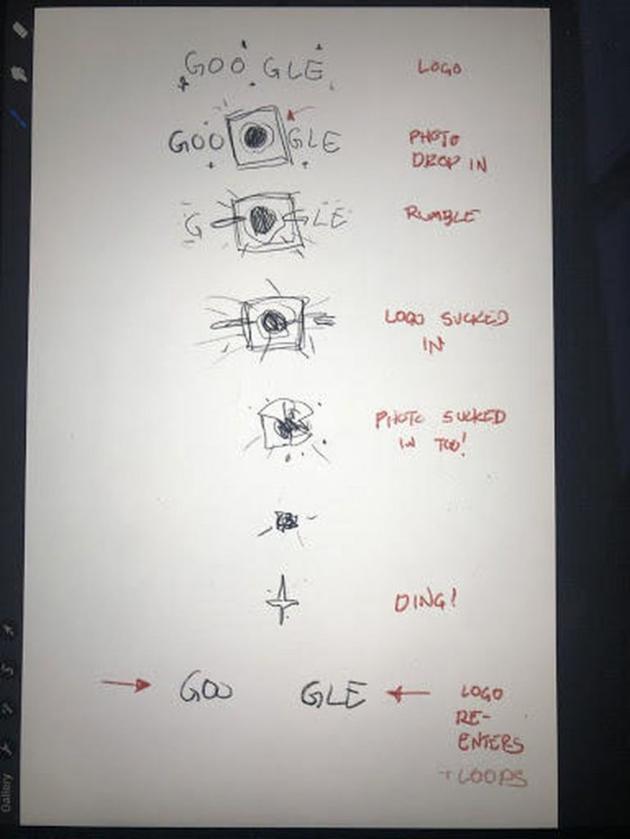 GOO GLE
LOGO
GOO GLE
PHOTO
DROP IN
G LE
RUMBLE
LOGO SUCKED
IN
PHOTO SUCKED
IN TOO!
DING!
GOO GLE
LOGO
RE-
ENTERS
+ LOOPS
Gallery